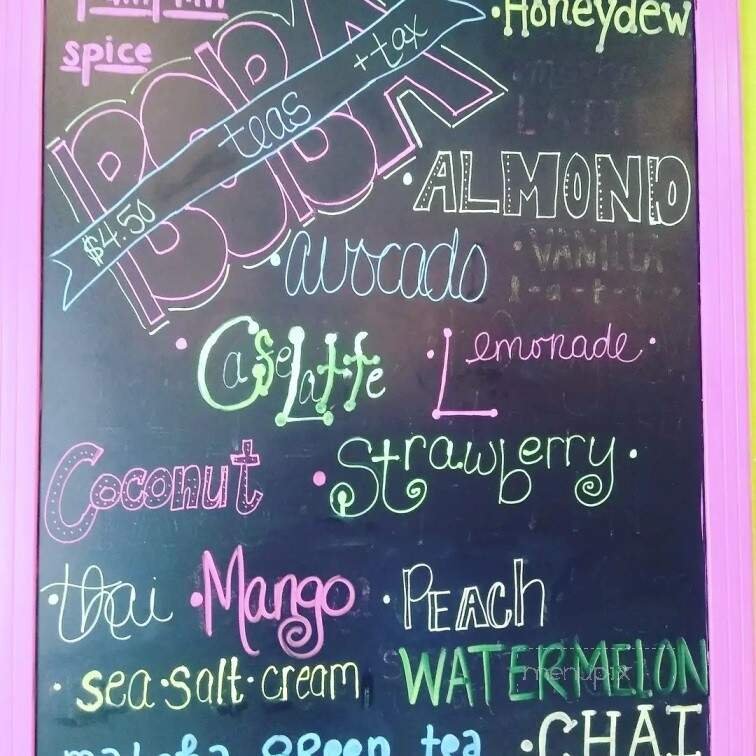 pumpkin
spice
BOBA
$4.50 teas + tax
• Honeydew
• ALMOND
• avocado
• VANILLA
• Cafe Latte
• Lemonade •
Coconut
• Strawberry •
• thai
• Mango
• PEACH
• sea•salt•cream
WATERMELON
menupix
matcha green tea
• CHAI